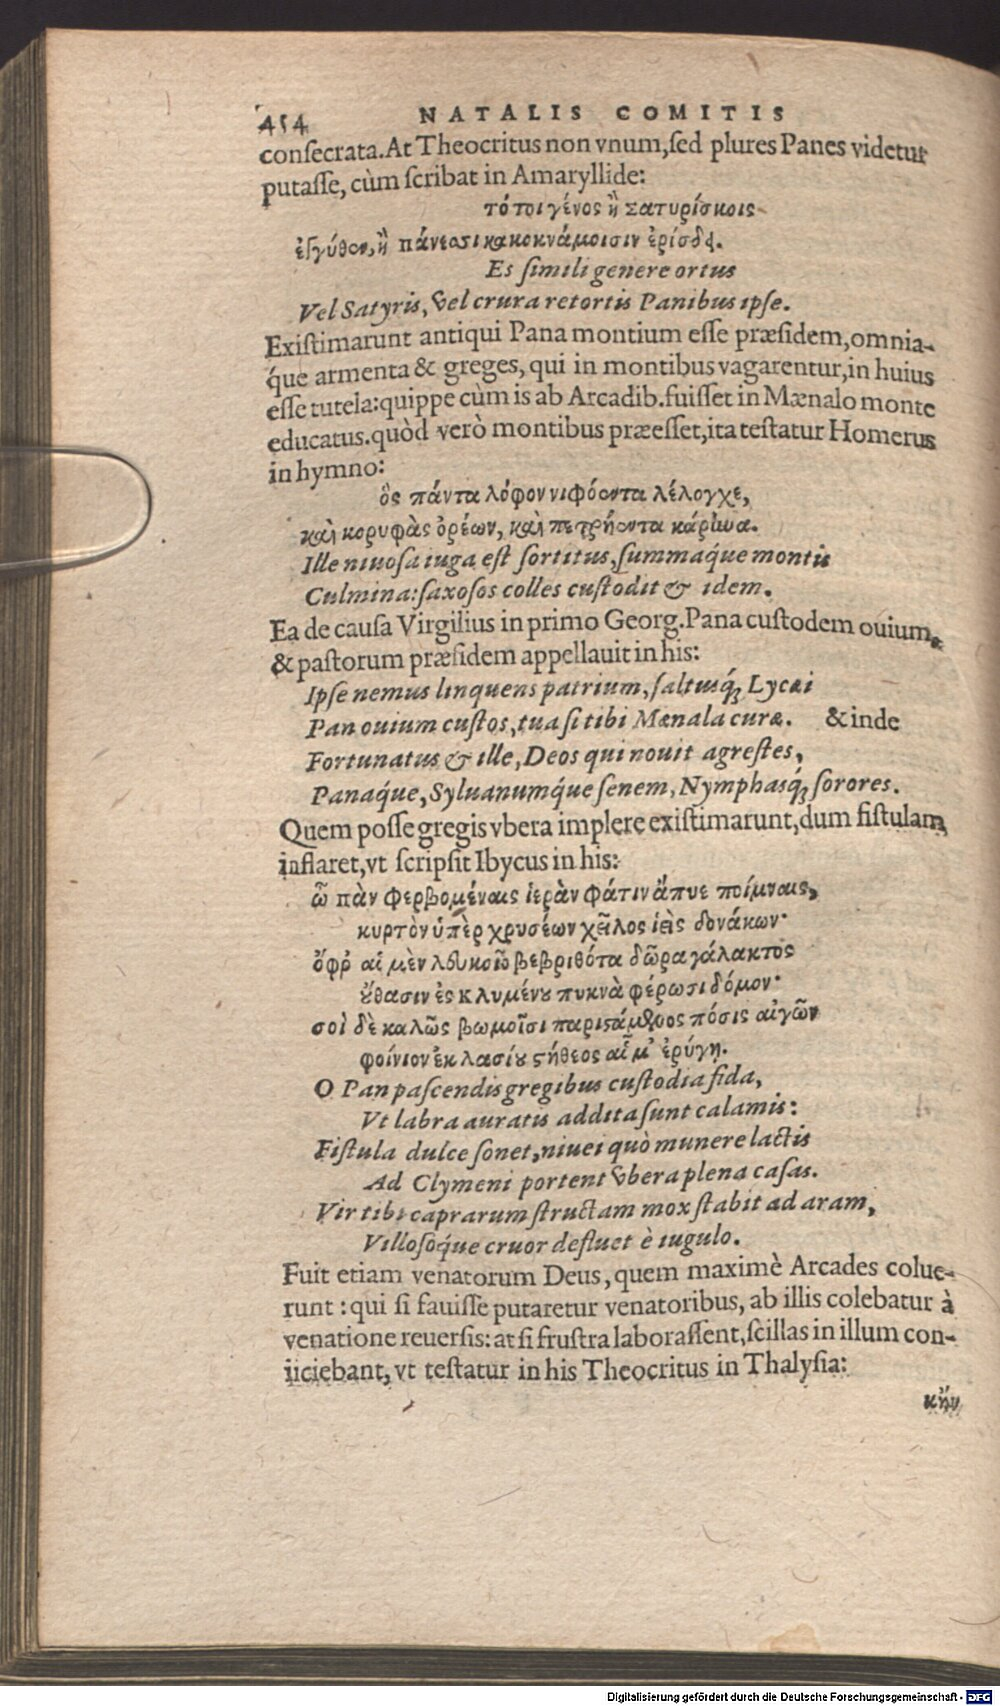 454 NATALIS COMITIS
conſecrata. At Theocritus non vnum, ſed plures Panes videtur
putaſſe, cùm ſcribat in Amaryllide:
τό τοι γένος ἢ Σατυρίσκοις
ἐγγύθεν, ἢ πάνεσσι κακοκνάμοισιν ἐρίσδει.
Es ſimili genere ortus
Vel Satyris, vel crura retortis Panibus ipſe.
Exiſtimarunt antiqui Pana montium eſſe præſidem, omnia-
q́ue armenta & greges, qui in montibus vagarentur, in huius
eſſe tutela: quippe cùm is ab Arcadib. fuiſſet in Mænalo monte
educatus. quòd verò montibus præeſſet, ita teſtatur Homerus
in hymno:
ὃς πάντα λόφον νιφόεντα λέλογχε,
καὶ κορυφὰς ὀρέων, καὶ πετρήεντα κάρηνα.
Ille niuoſa iuga eſt ſortitus, ſummaq́ue montis
Culmina: ſaxoſos colles cuſtodit & idem.
Ea de cauſa Virgilius in primo Georg. Pana cuſtodem ouium,
& paſtorum præſidem appellauit in his:
Ipſe nemus linquens patrium, ſaltusq́; Lycæi
Pan ouium cuſtos, tua ſi tibi Mænala curæ. & inde
Fortunatus & ille, Deos qui nouit agreſtes,
Panaq́ue, Syluanumq́ue ſenem, Nymphasq́; ſorores.
Quem poſſe gregis vbera implere exiſtimarunt, dum fiſtulam
inflaret, vt ſcripſit Ibycus in his:
ὦ πὰν φερβομέναις ἱερὰν φάτιν ἄπυε ποίμναις,
κυρτὸν ὑπὲρ χρυσέων χεῖλος ἱεὶς δονάκων·
ὄφρ' αἱ μὲν λευκοῖο βεβριθότα δῶρα γάλακτος
οὔθασιν ἐς Κλυμένου πυκνὰ φέρωσι δόμον·
σοὶ δὲ καλῶς βωμοῖσι παριστάμενος πόσις αἰγῶν
φοίνιον ἐκ λασίου στήθεος αἷμ' ἐρύγῃ.
O Pan paſcendis gregibus cuſtodia fida,
Vt labra auratis addita ſunt calamis:
Fiſtula dulce ſonet, niuei quò munere lactis
Ad Clymeni portent vbera plena caſas.
Vir tibi caprarum ſtructam mox ſtabit ad aram,
Villoſoq́ue cruor defluet è iugulo.
Fuit etiam venatorum Deus, quem maximè Arcades colue-
runt: qui ſi fauiſſe putaretur venatoribus, ab illis colebatur à
venatione reuerſis: at ſi fruſtra laboraſſent, ſcillas in illum con-
iiciebant, vt teſtatur in his Theocritus in Thalyſia:
κἢν
Digitalisierung gefördert durch die Deutsche Forschungsgemeinschaft - DFG